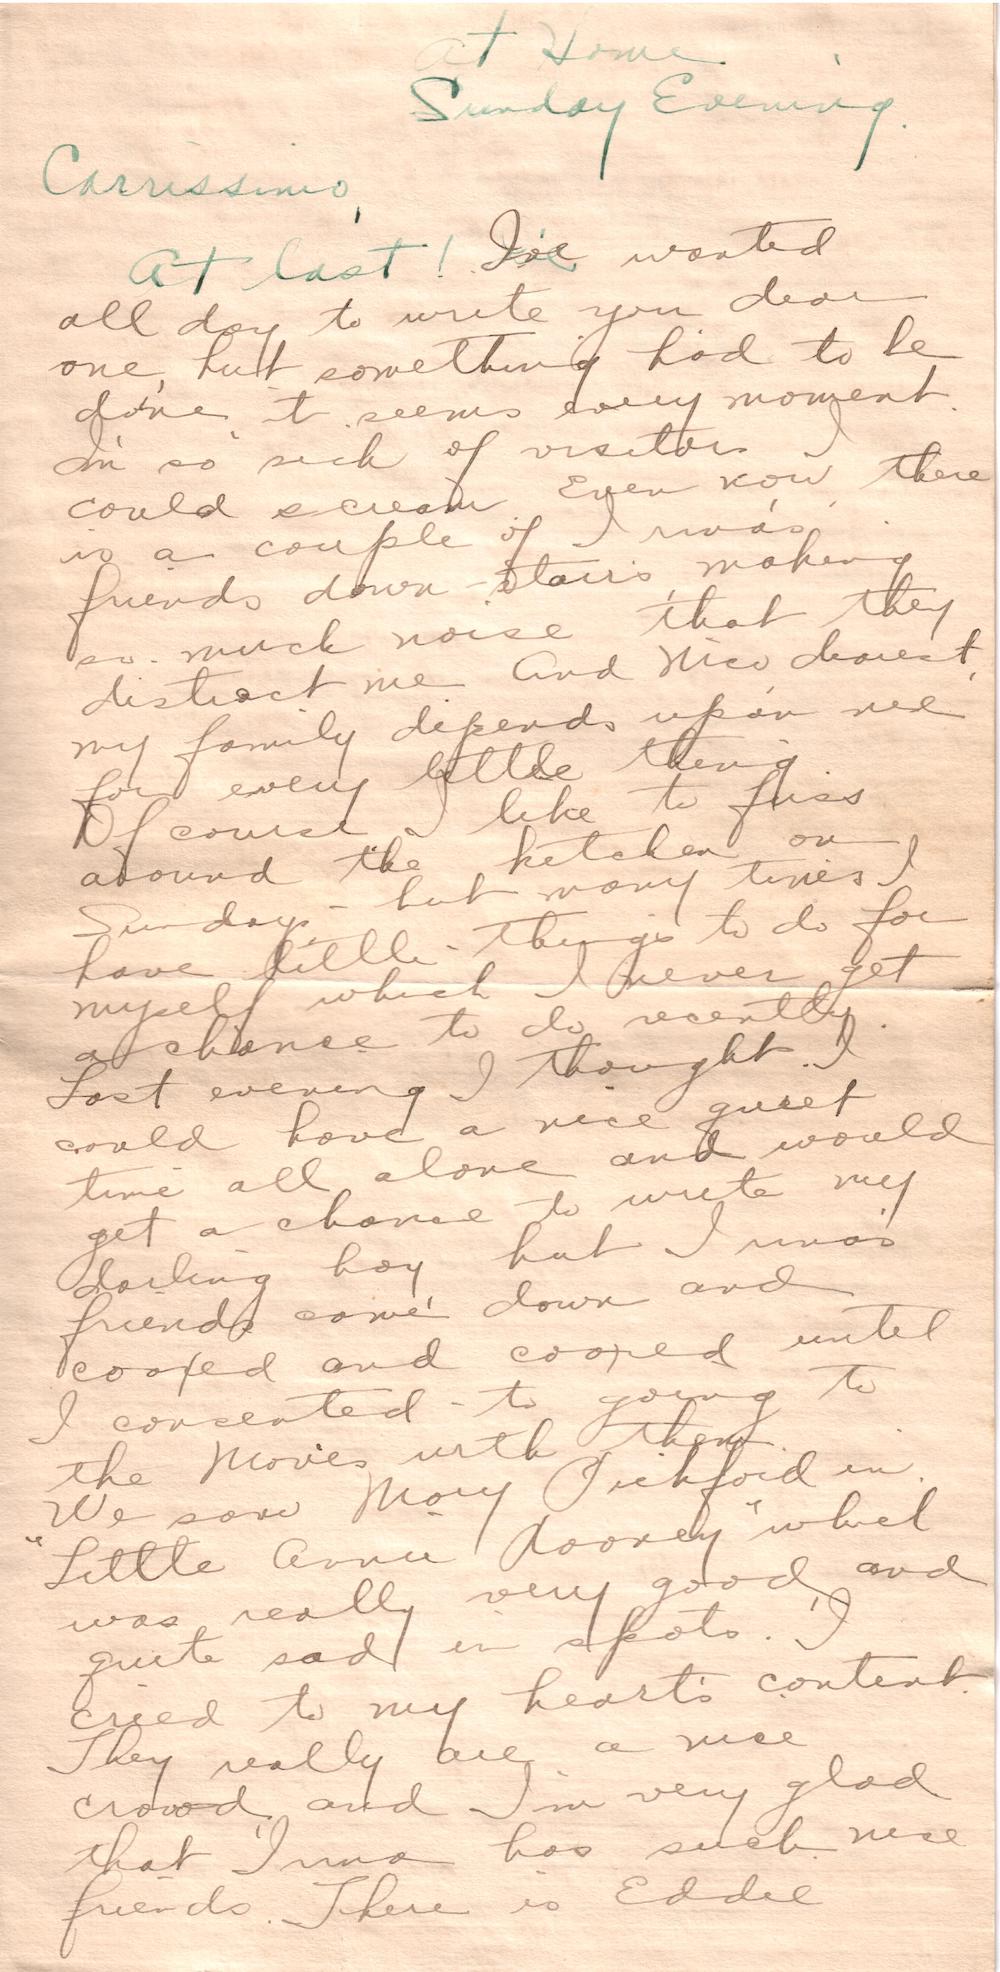 At Home
Sunday Evening.
Carrissimo,
At last! I've wanted
all day to write you dear
one, but something had to be
done, it seems every moment.
I'm so sick of visitors I
could scream. Even now there
is a couple of Irma's
friends down-stairs, making
so much noise that they
distract me. And Nico, dearest,
my family depends upon me
for every little thing.
Of course I like to fuss
around the kitchen on
Sundays,- but many times I
have little things to do for
myself which I never get
a chance to do recently.
Last evening I thought I
could have a nice quiet
time all alone and would
get a chance to write my
darling boy but Irma's
friends came down and
coaxed and coaxed until
I consented to going to
the Movies with them.
We saw Mary Pickford in
"Little Annie Rooney" which
was really very good, and
quite sad in spots. I
cried to my heart's content.
They really are a nice
crowd, and I'm very glad
that Irma has such nice
friends. There is Eddie